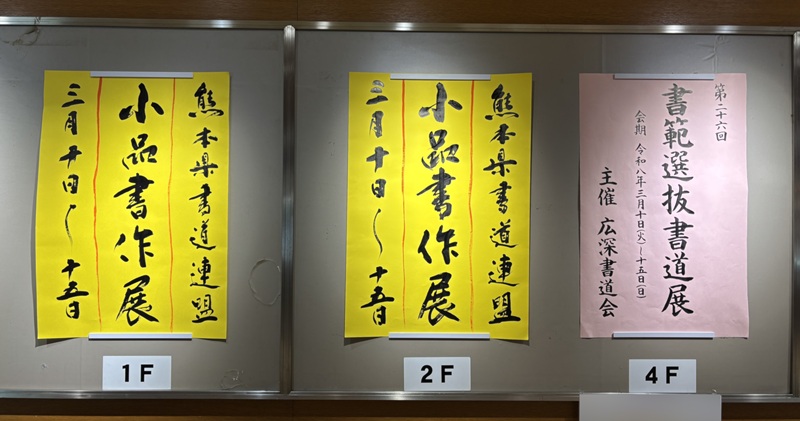 熊本県書道連盟
小品書作展
三月十日〜十五日
1F
熊本県書道連盟
小品書作展
三月十日〜十五日
2F
第二十六回
書範選抜書道展
会期 令和八年三月十日(火)〜十五日(日)
主催 広深書道会
4F